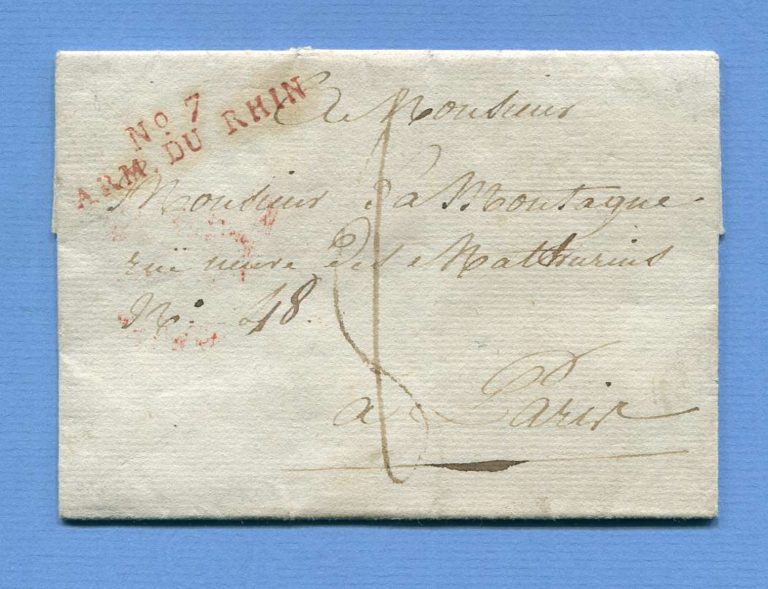 No 7
ARM. DU RHIN
A Monsieur
Monsieur da Montague
rue neuve des Mathurins
No. 48.
a Paris